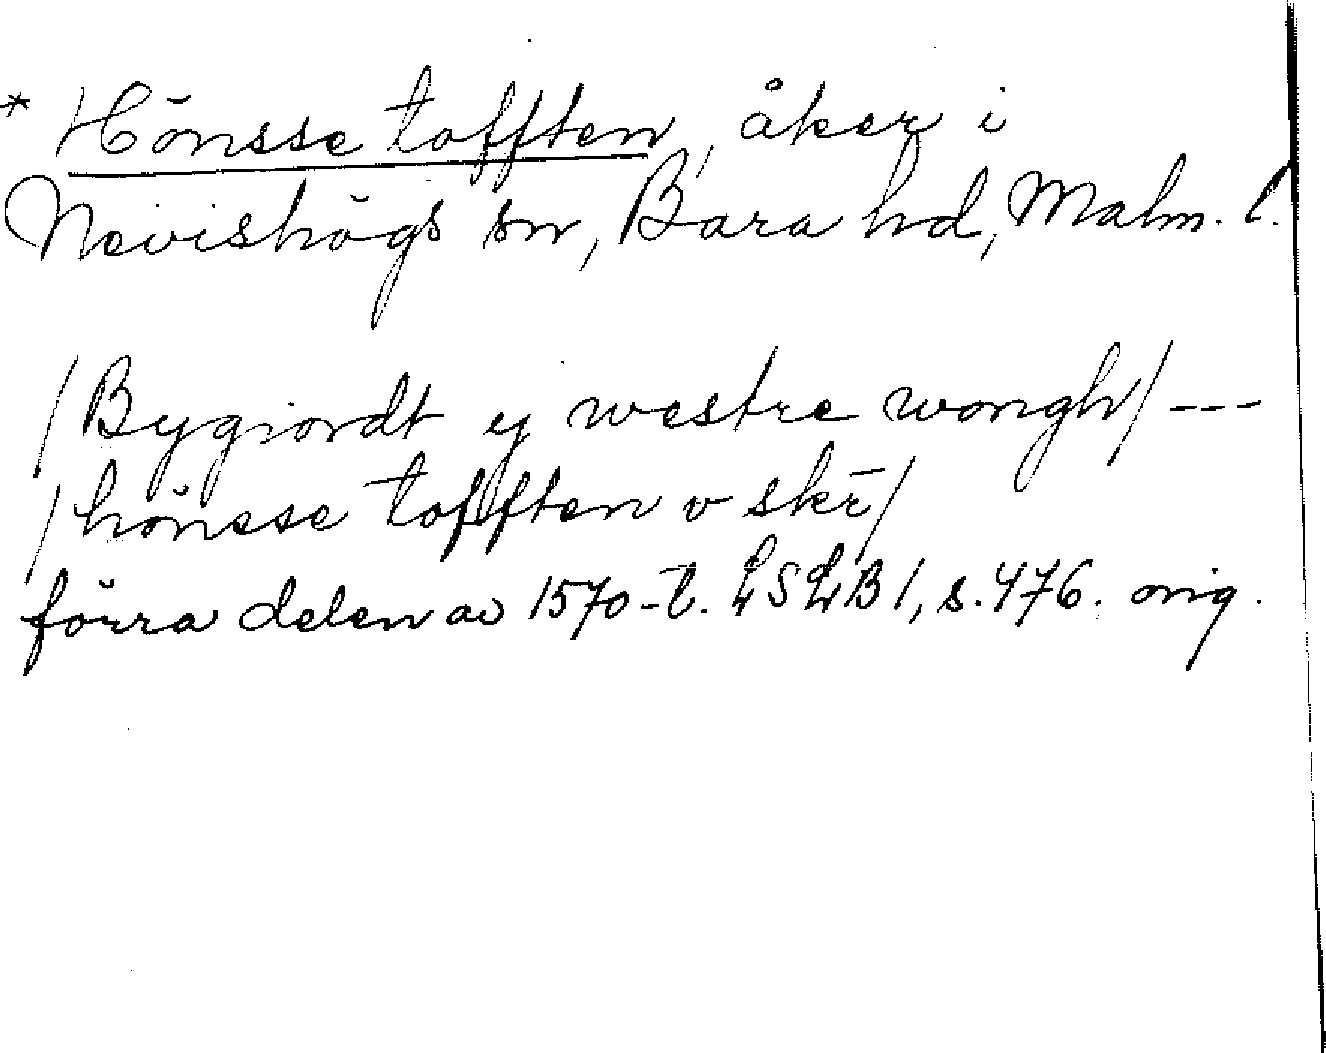 * Hönsse tofften, åker i
Nevishögs sn, Bara hd, Malm. l.
/Bygiordt ij westre wongh/ ---
/hönsse tofften v skr̄/
förra delen av 1570-t. LSLB 1, s. 476. orig.